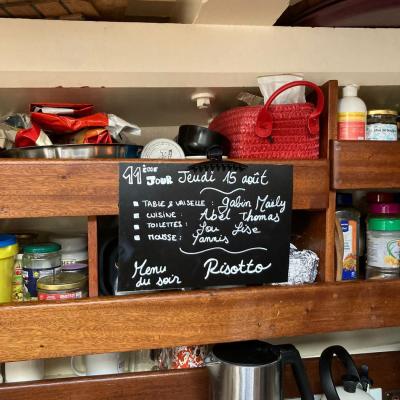 11ème JOUR Jeudi 15 août
TABLE & VAISELLE : Gabin Maëly
CUISINE : Abel Thomas
TOILETTES : Lou Lise
MOUSSE : Yannis
Menu du soir Risotto